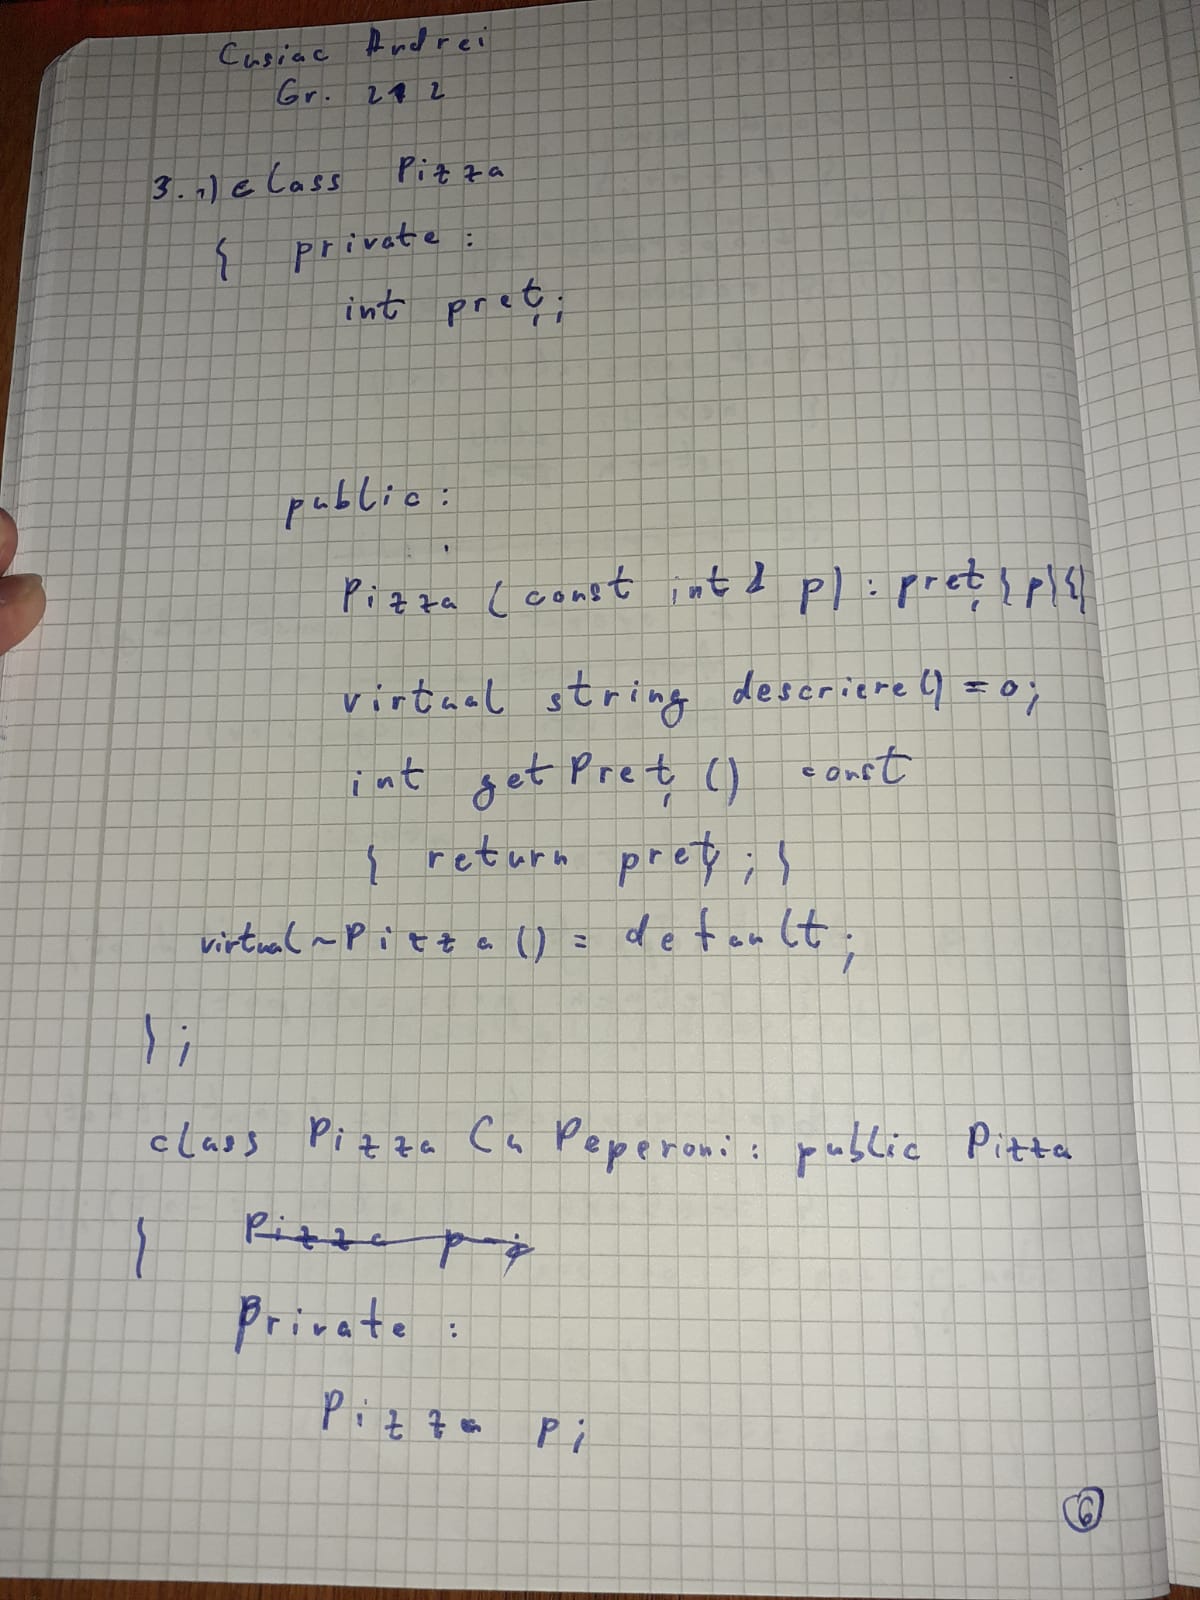 Cusiac Andrei
Gr. 212
3. 1) class Pizza
{ private:
int preț;
public:
Pizza (const int& p) : preț{p}{}
virtual string descriere() = 0;
int getPreț () const
{ return preț; }
virtual ~Pizza() = default;
};
class Pizza Cu Peperoni: public Pizza
{ Pizza p;
Private :
Pizza p;
6